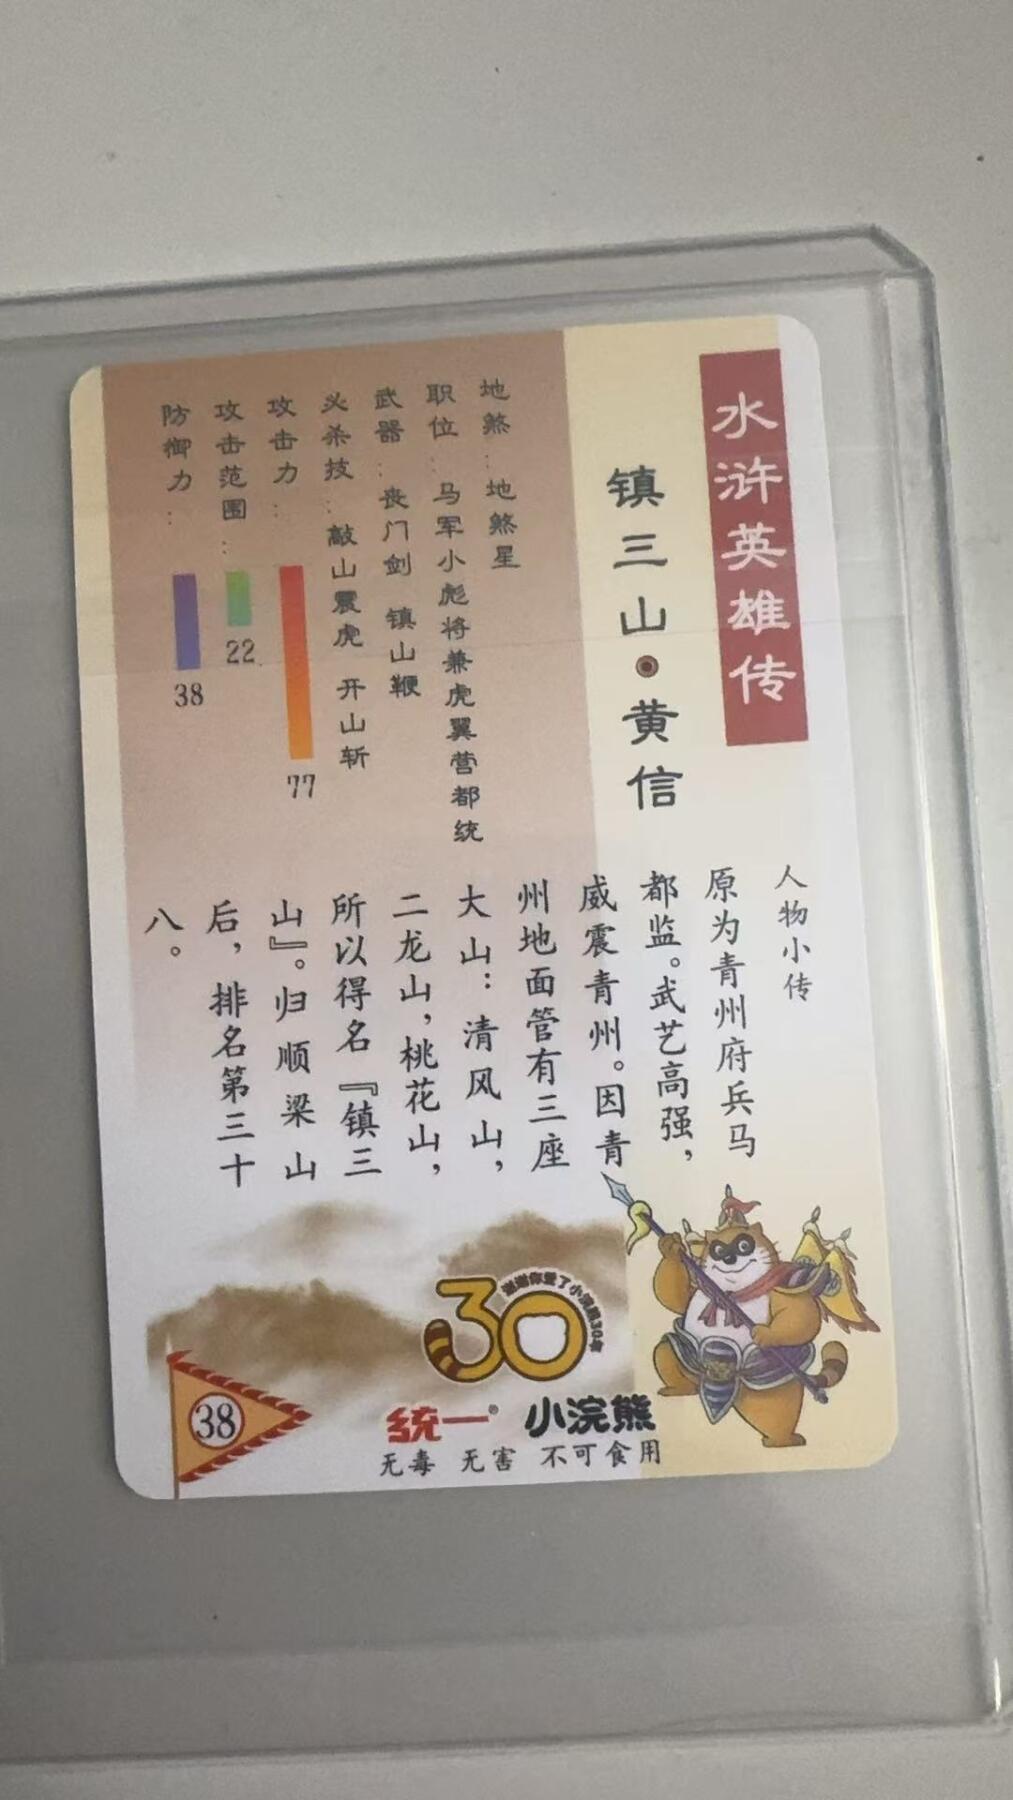 水浒英雄传
镇三山·黄信
地煞：地煞星
职位：马军小彪将兼虎翼营都统
武器：丧门剑 镇山鞭
必杀技：敲山震虎 开山斩
攻击力：77
攻击范围：22
防御力：38
人物小传
原为青州府兵马
都监。武艺高强，
威震青州。因青
州地面管有三座
大山：清风山，
二龙山，桃花山，
所以得名『镇三
山』。归顺梁山
后，排名第三十
八。
30
谢谢你爱了小浣熊30年
统一® 小浣熊
无毒 无害 不可食用
38